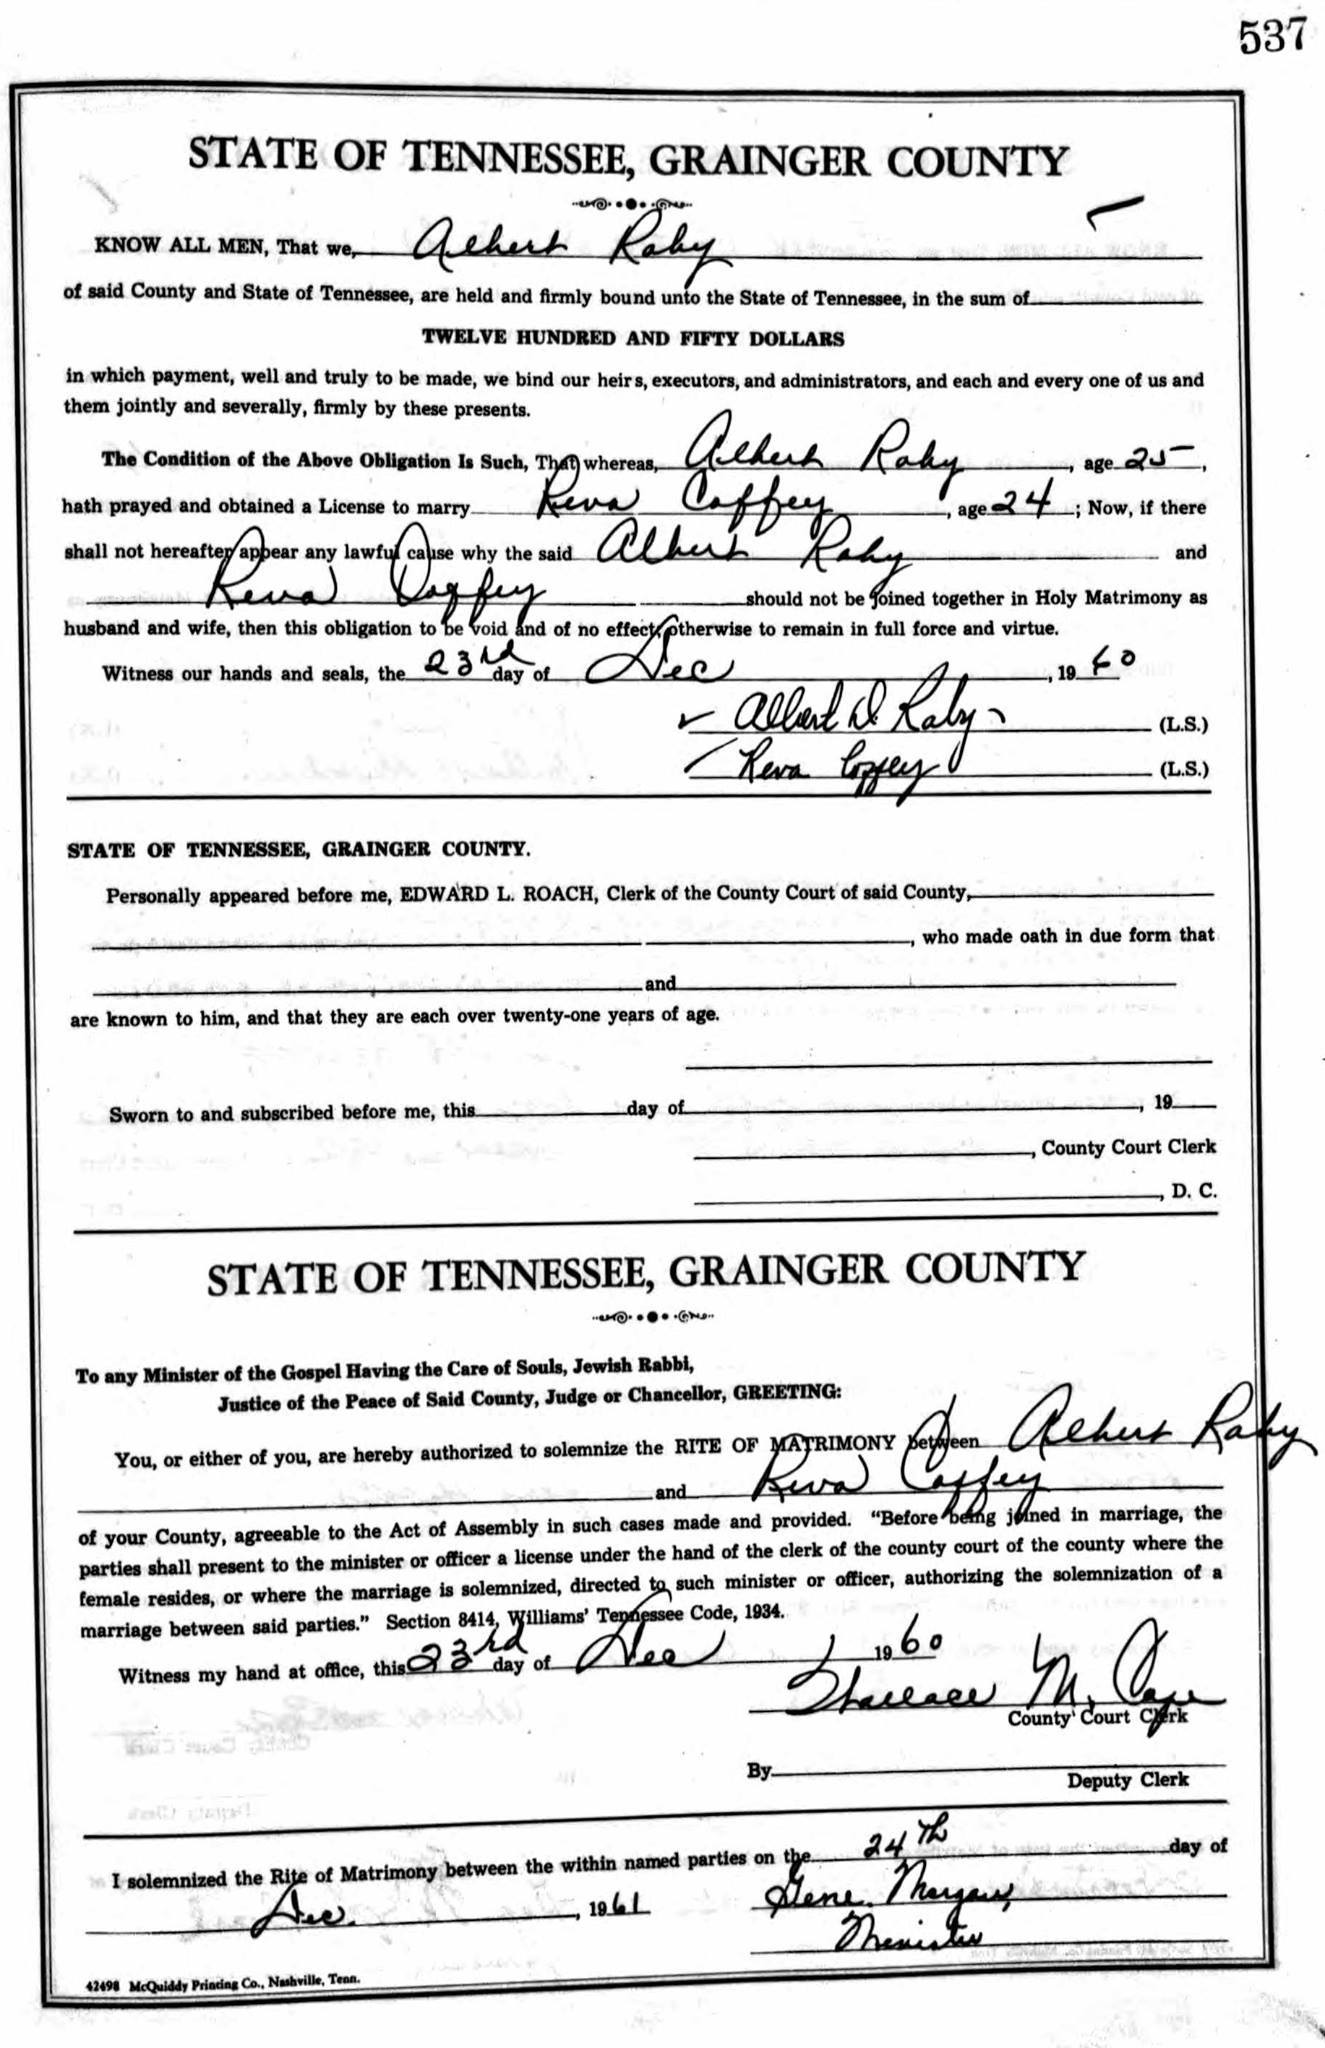 537
STATE OF TENNESSEE, GRAINGER COUNTY
KNOW ALL MEN, That we, Albert Raby
of said County and State of Tennessee, are held and firmly bound unto the State of Tennessee, in the sum of
TWELVE HUNDRED AND FIFTY DOLLARS
in which payment, well and truly to be made, we bind our heirs, executors, and administrators, and each and every one of us and
them jointly and severally, firmly by these presents.
The Condition of the Above Obligation Is Such, That whereas, Albert Raby, age 25,
hath prayed and obtained a License to marry Reva Coffey, age 24; Now, if there
shall not hereafter appear any lawful cause why the said Albert Raby and
Reva Coffey should not be joined together in Holy Matrimony as
husband and wife, then this obligation to be void and of no effect, otherwise to remain in full force and virtue.
Witness our hands and seals, the 23rd day of Dec, 1960
Albert D. Raby (L.S.)
Reva Coffey (L.S.)
STATE OF TENNESSEE, GRAINGER COUNTY.
Personally appeared before me, EDWARD L. ROACH, Clerk of the County Court of said County,
, who made oath in due form that
and
are known to him, and that they are each over twenty-one years of age.
Sworn to and subscribed before me, this day of , 19
, County Court Clerk
, D. C.
STATE OF TENNESSEE, GRAINGER COUNTY
To any Minister of the Gospel Having the Care of Souls, Jewish Rabbi,
Justice of the Peace of Said County, Judge or Chancellor, GREETING:
You, or either of you, are hereby authorized to solemnize the RITE OF MATRIMONY between Albert Raby
and Reva Coffey
of your County, agreeable to the Act of Assembly in such cases made and provided. "Before being joined in marriage, the
parties shall present to the minister or officer a license under the hand of the clerk of the county court of the county where the
female resides, or where the marriage is solemnized, directed to such minister or officer, authorizing the solemnization of a
marriage between said parties." Section 8414, Williams' Tennessee Code, 1934.
Witness my hand at office, this 23rd day of Dec 1960
M.
County Court Clerk
By
Deputy Clerk
I solemnized the Rite of Matrimony between the within named parties on the 24Th day of
Dec., 1961 Gene Morgan,
Minister
42498 McQuiddy Printing Co., Nashville, Tenn.